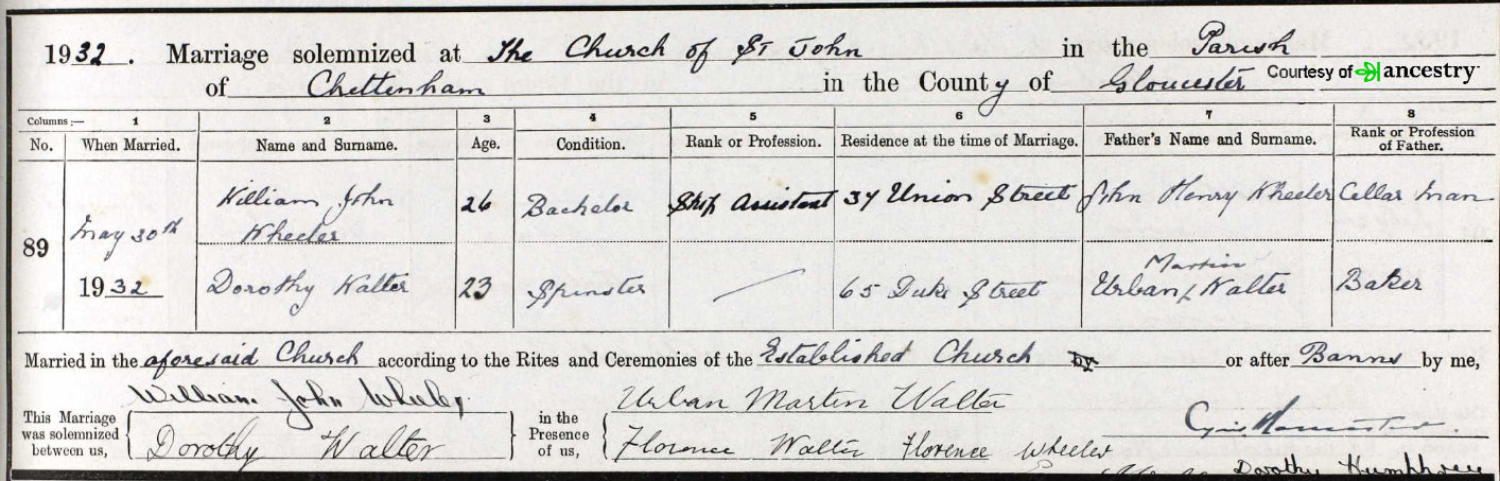 1932. Marriage solemnized at The Church of St John in the Parish
of Cheltenham in the County of Gloucester Courtesy of ancestry
Columns:— 1 2 3 4 5 6 7 8
No. When Married. Name and Surname. Age. Condition. Rank or Profession. Residence at the time of Marriage. Father's Name and Surname. Rank or Profession of Father.
89 May 30th 1932
William John Wheeler 26 Bachelor Shop Assistant 37 Union Street John Henry Wheeler Cellar man
Dorothy Walter 23 Spinster 65 Duke Street Urban Martin Walter Baker
Married in the aforesaid Church according to the Rites and Ceremonies of the Established Church by or after Banns by me,
This Marriage was solemnized between us,
William John Wheeler
Dorothy Walter
in the Presence of us,
Urban Martin Walter
Florence Walter Florence Wheeler
Dorothy Humphrey